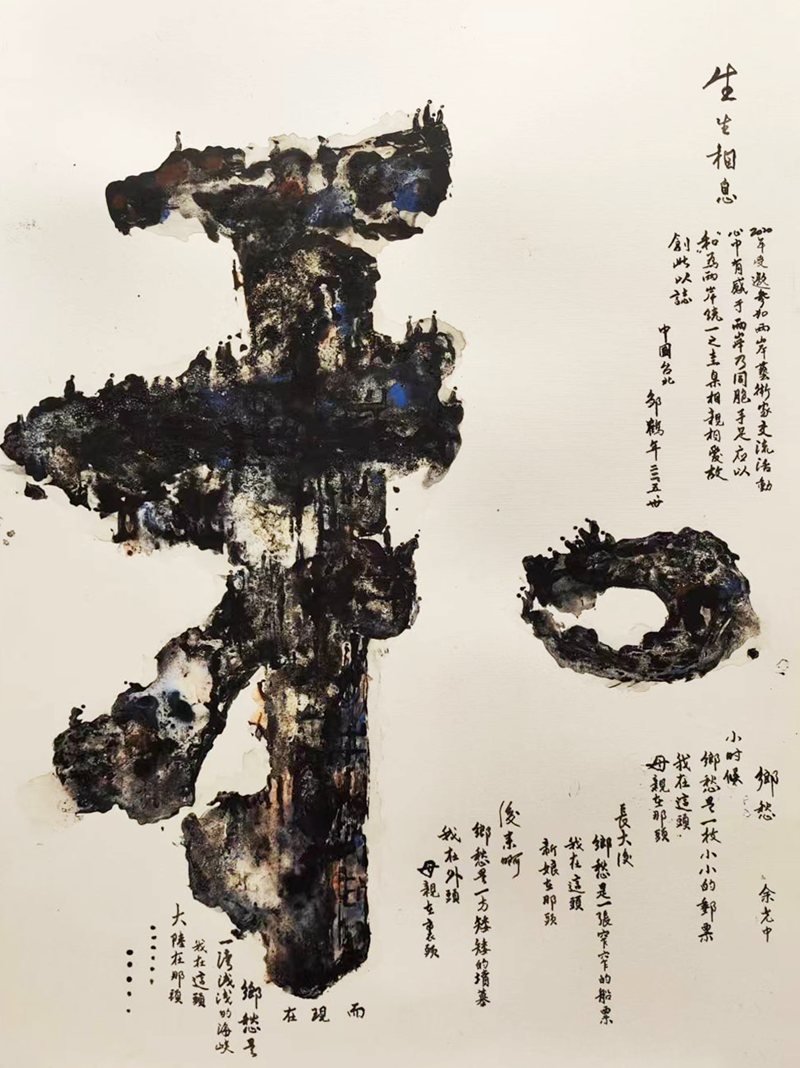 和
生生相息
2020年受邀參加兩岸藝術家交流活動
心中有感于兩岸乃同胞手足应以
“和”爲兩岸統一之圭臬相親相愛故
創此以誌
中國台北 邹鶴年
鄉愁 余光中
小时候
鄉愁是一枚小小的郵票
我在這頭
母親在那頭
長大後
鄉愁是一張窄窄的船票
我在這頭
新娘在那頭
後来啊
鄉愁是一方矮矮的墳墓
我在外頭
母親在裏頭
而現在
鄉愁是
一灣浅浅的海峡
我在這頭
大陸在那頭